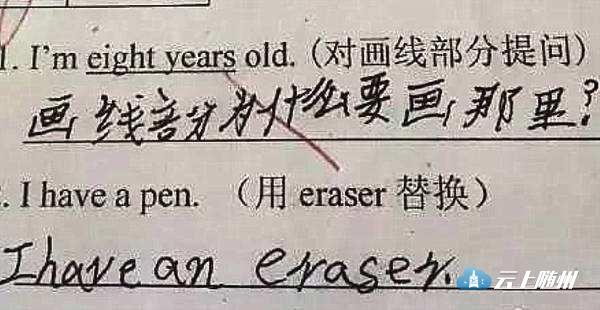 1. I'm eight years old. (对画线部分提问)
画线部分为什么要画那里?
. I have a pen. (用 eraser 替换)
I have an eraser.
云上随州